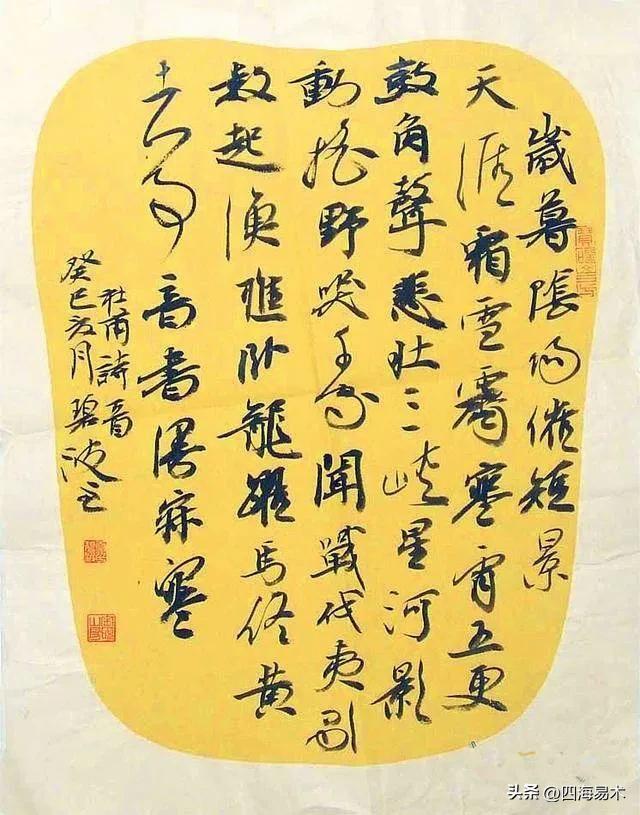 歲暮陰陽催短景
天涯霜雪霽寒宵五更
鼓角聲悲壯三峽星河影
動搖野哭千家聞戰伐夷歌
數起漁樵臥龍躍馬終黃
土人事音書漫寂寥
杜甫詩
癸巳月碧波
头条 @四海易木